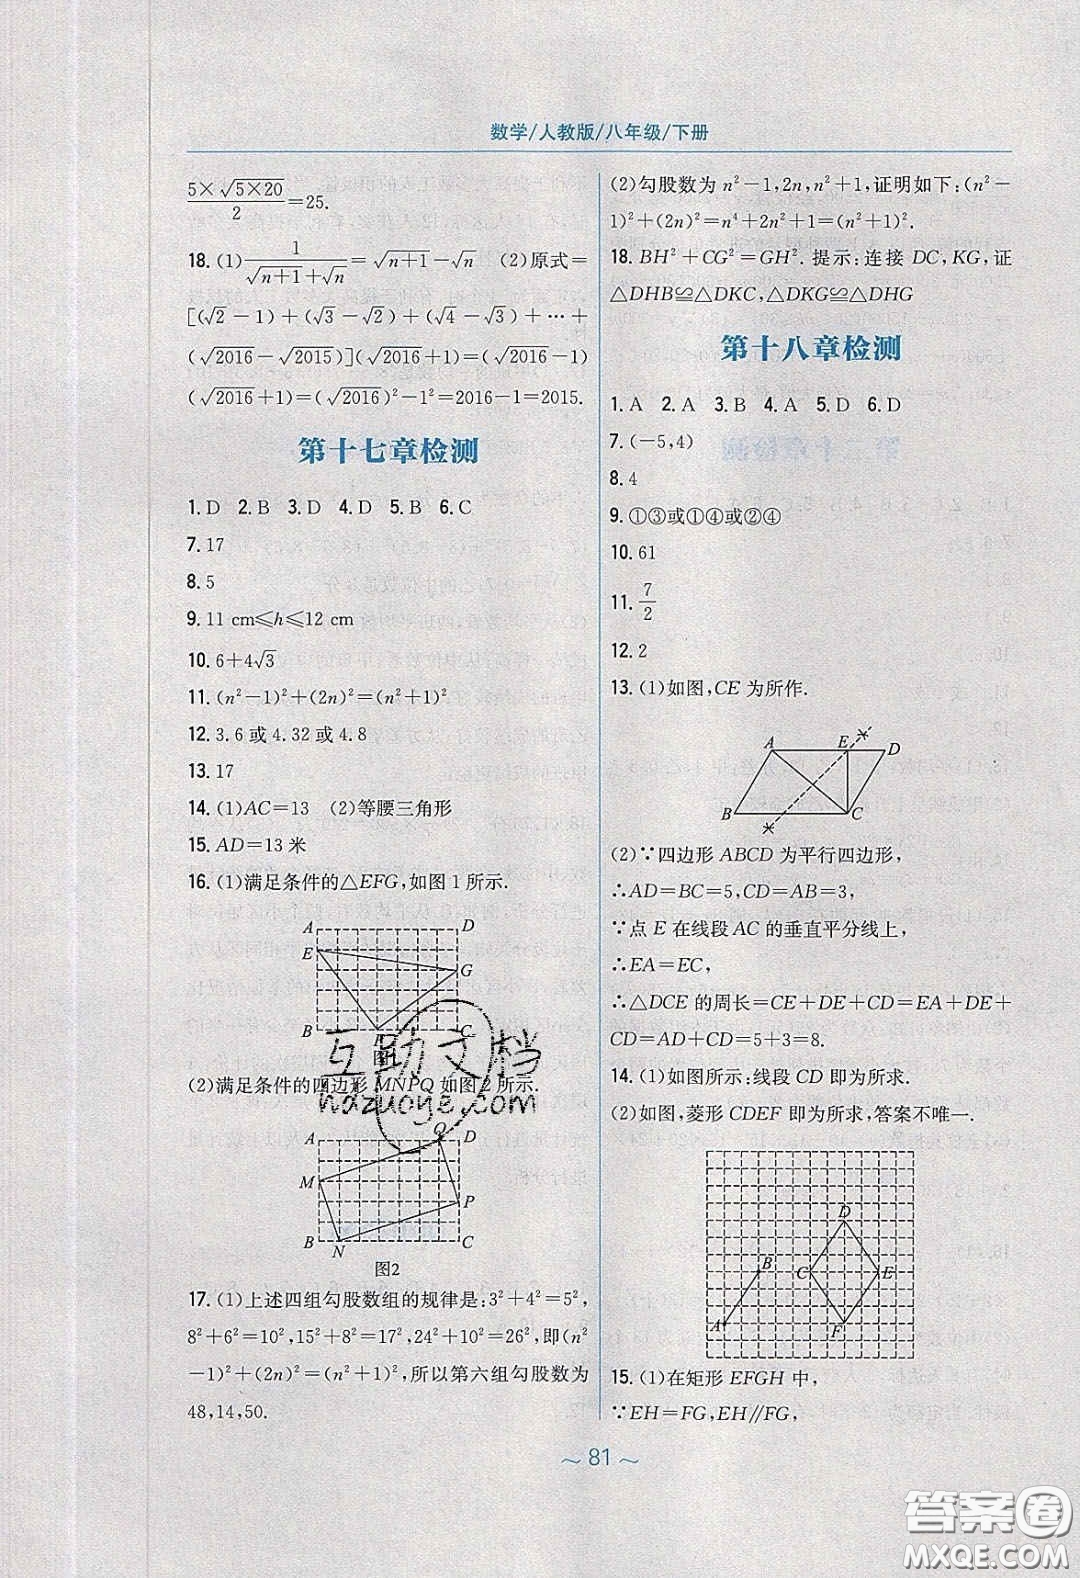 数学/人教版/八年级/下册
5×√(5×20)/2=25.
18. (1) 1/(√(n+1)+√n)=√(n+1)-√n (2)原式=
[(√2-1)+(√3-√2)+(√4-√3)+…+
(√2016-√2015)](√2016+1)=(√2016-1)
(√2016+1)=(√2016)²-1²=2016-1=2015.
第十七章检测
1. D 2. B 3. D 4. D 5. B 6. C
7. 17
8. 5
9. 11 cm≤h≤12 cm
10. 6+4√3
11. (n²-1)²+(2n)²=(n²+1)²
12. 3.6或4.32或4.8
13. 17
14. (1)AC=13 (2)等腰三角形
15. AD=13米
16. (1)满足条件的△EFG,如图1所示.
A D
E
G
B F C
图1
(2)满足条件的四边形MNPQ如图2所示.
A Q D
M
P
B N C
图2
17. (1)上述四组勾股数组的规律是:3²+4²=5²,
8²+6²=10²,15²+8²=17²,24²+10²=26²,即(n²
-1)²+(2n)²=(n²+1)²,所以第六组勾股数为
48,14,50.
(2)勾股数为n²-1,2n,n²+1,证明如下:(n²-
1)²+(2n)²=n⁴+2n²+1=(n²+1)².
18. BH²+CG²=GH². 提示:连接DC,KG,证
△DHB≌△DKC,△DKG≌△DHG
第十八章检测
1. A 2. A 3. B 4. A 5. D 6. D
7. (-5,4)
8. 4
9. ①③或①④或②④
10. 61
11. 7/2
12. 2
13. (1)如图,CE为所作.
A E D
B C
(2)∵四边形ABCD为平行四边形,
∴AD=BC=5,CD=AB=3,
∵点E在线段AC的垂直平分线上,
∴EA=EC,
∴△DCE的周长=CE+DE+CD=EA+DE+
CD=AD+CD=5+3=8.
14. (1)如图所示:线段CD即为所求.
(2)如图,菱形CDEF即为所求,答案不唯一.
D
B C E
A F
15. (1)在矩形EFGH中,
∵EH=FG,EH∥FG,
~ 81 ~
互助文档
hdzuoye.com
答案圈
MXQE.COM